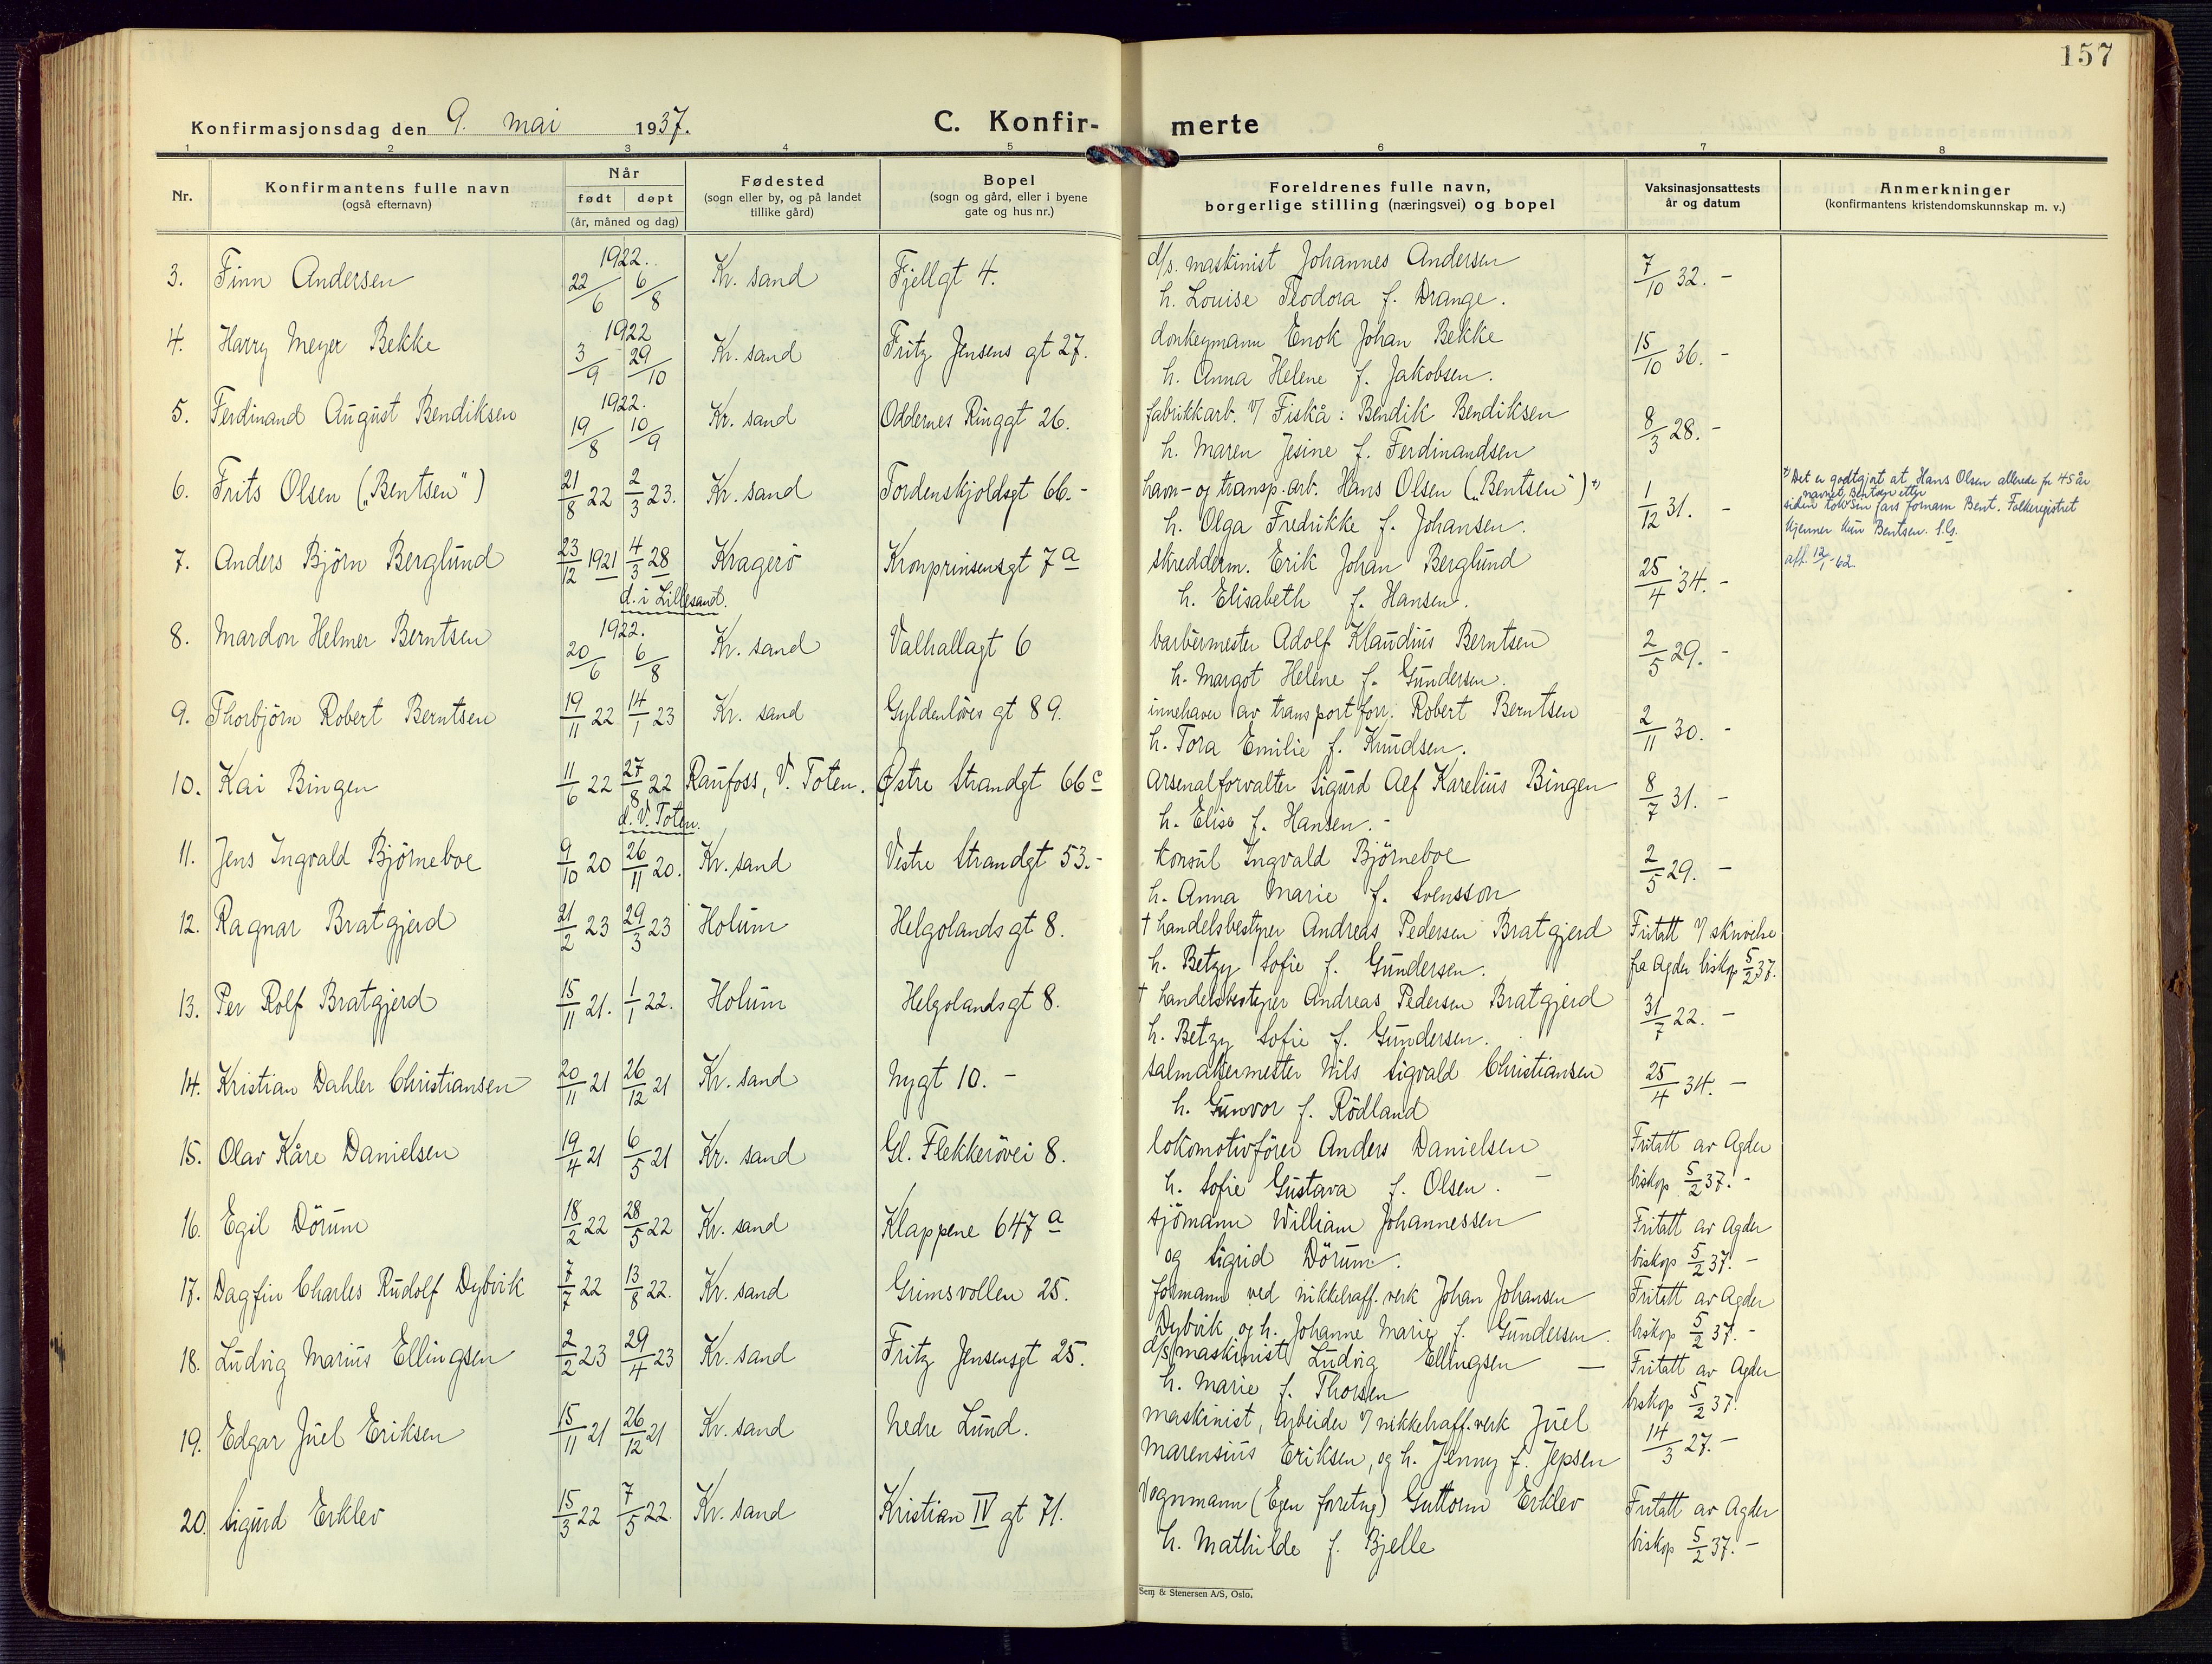 157
Konfirmasjonsdag den 9. mai 1937.
C. Konfir- merte
1 2 3 4 5 6 7 8
Nr.
Konfirmantens fulle navn
(også efternavn)
Når
født døpt
(år, måned og dag)
Fødested
(sogn eller by, og på landet
tillike gård)
Bopel
(sogn og gård, eller i byene
gate og hus nr.)
Foreldrenes fulle navn,
borgerlige stilling (næringsvei) og bopel
Vaksinasjonsattests
år og datum
Anmerkninger
(konfirmantens kristendomskunnskap m. v.)
3. Finn Andersen 1922. 22/6 6/8 Kr. sand Fjellgt 4. d/s. maskinist Johannes Andersen 7/10 32. -
h. Louise Teodora f. Drange.
4. Harry Meyer Bekke 1922 3/9 29/10 Kr. sand Fritz Jensens gt 27. donkeymann Enok Johan Bekke 15/10 36. -
h. Anna Helene f. Jakobsen.
5. Ferdinand August Bendiksen 1922. 19/8 10/9 Kr. sand Oddernes Ringgt 26. fabrikkarb. v/ Fiskå: Bendik Bendiksen 8/3 28. -
h. Maren Jesine f. Ferdinandsen
6. Frits Olsen („Bentsen") 21/8 22 2/3 23. Kr. sand Tordenskjoldsgt 66. - havn- og transp. arb. Hans Olsen („Bentsen") x) 1/12 31. -
h. Olga Fredrikke f. Johansen.
x) Det er godtgjort at Hans Olsen allerede for 45 år
siden tok navnet Bentsen etter sin fars fornavn Bent. Folkeregistret
kjenner kun Bentsen. S.G.
att. 12/1-62.
7. Anders Bjørn Berglund 23/12 1921 4/3 28 Kragerö Kronprinsensgt 7a skredderm. Erik Johan Berglund 25/4 34. -
d. i Lillesand.
h. Elisabeth f. Hansen.
8. Mardon Helmer Berntsen 1922. 20/6 6/8 Kr. sand Valhallagt 6 barbermester Adolf Klaudius Berntsen 2/5 29. -
h. Margot Helene f. Gundersen.
9. Thorbjörn Robert Berntsen 19/11 22 14/1 23 Kr. sand Gyldenlöves gt 89. innehaver av transportforr. Robert Berntsen 2/11 30. -
h. Tora Emilie f. Knudsen.
10. Kai Bingen 11/6 22 27/8 22 Raufoss, V. Toten. Østre Strandgt 66c Arsenalforvalter Sigurd Alf Karelius Bingen 8/7 31. -
d. V. Toten.
h. Elise f. Hansen. -
11. Jens Ingvald Bjørneboe 9/10 20 26/11 20. Kr. sand Vestre Strandgt 53. - Konsul Ingvald Bjørneboe 2/5 29. -
h. Anna Marie f. Svensson
12. Ragnar Bratgjerd 21/2 23 29/3 23 Holum Helgolandsgt 8. † handelsbestyrer Andreas Pedersen Bratgjerd Fritatt v/ skrivelse
h. Betzy Sofie f. Gundersen. fra Agder biskop 5/2 37.
13. Per Rolf Bratgjerd 15/11 21. 1/1 22. Holum Helgolandsgt 8. † handelsbestyrer Andreas Pedersen Bratgjerd 31/7 22. -
h. Betzy Sofie f. Gundersen.
14. Kristian Dahler Christiansen 20/11 21 26/12 21 Kr. sand Nygt 10. - salmakermester Nils Sigvald Christiansen 25/4 34. -
h. Gunvor f. Rödland
15. Olav Kåre Danielsen 19/4 21 6/5 21 Kr. sand Gl. Flekkeröivei 8. lokomotivförer Anders Danielsen Fritatt av Agder
h. Sofie Gustava f. Olsen. - biskop 5/2 37. -
16. Egil Dörum 18/2 22 28/5 22 Kr. sand Klappene 647a sjömann William Johannessen Fritatt av Agder
og Sigrid Dörum. biskop 5/2 37. -
17. Dagfin Charles Rudolf Dybvik 7/7 22 13/8 22. Kr. sand Grimsvollen 25. formann ved nikkelraff. verk Johan Johansen Fritatt av Agder
Dybvik og h. Johanne Marie f. Gundersen. biskop 5/2 37. -
18. Ludvig Marius Ellingsen 2/2 23 29/4 23 Kr. sand Fritz Jensensgt 25. d/s maskinist Ludvig Ellingsen - Fritatt av Agder
h. Marie f. Thorsen biskop 5/2 37.
19. Edgar Juel Eriksen 15/11 21 26/12 21 Kr. sand Nedre Lund. maskinist, arbeider v/ nikkelraff. verk Juel 14/3 27. -
Marensius Eriksen, og h. Jenny f. Jepsen
20. Sigurd Erklev 15/3 22 7/5 22. Kr. sand Kristian IV gt 71. Vognmann (Egen forretng) Guttorm Erklev Fritatt av Agder
h. Mathilde f. Bjelle biskop 5/2 37. -
Sem & Stenersen A/S, Oslo.